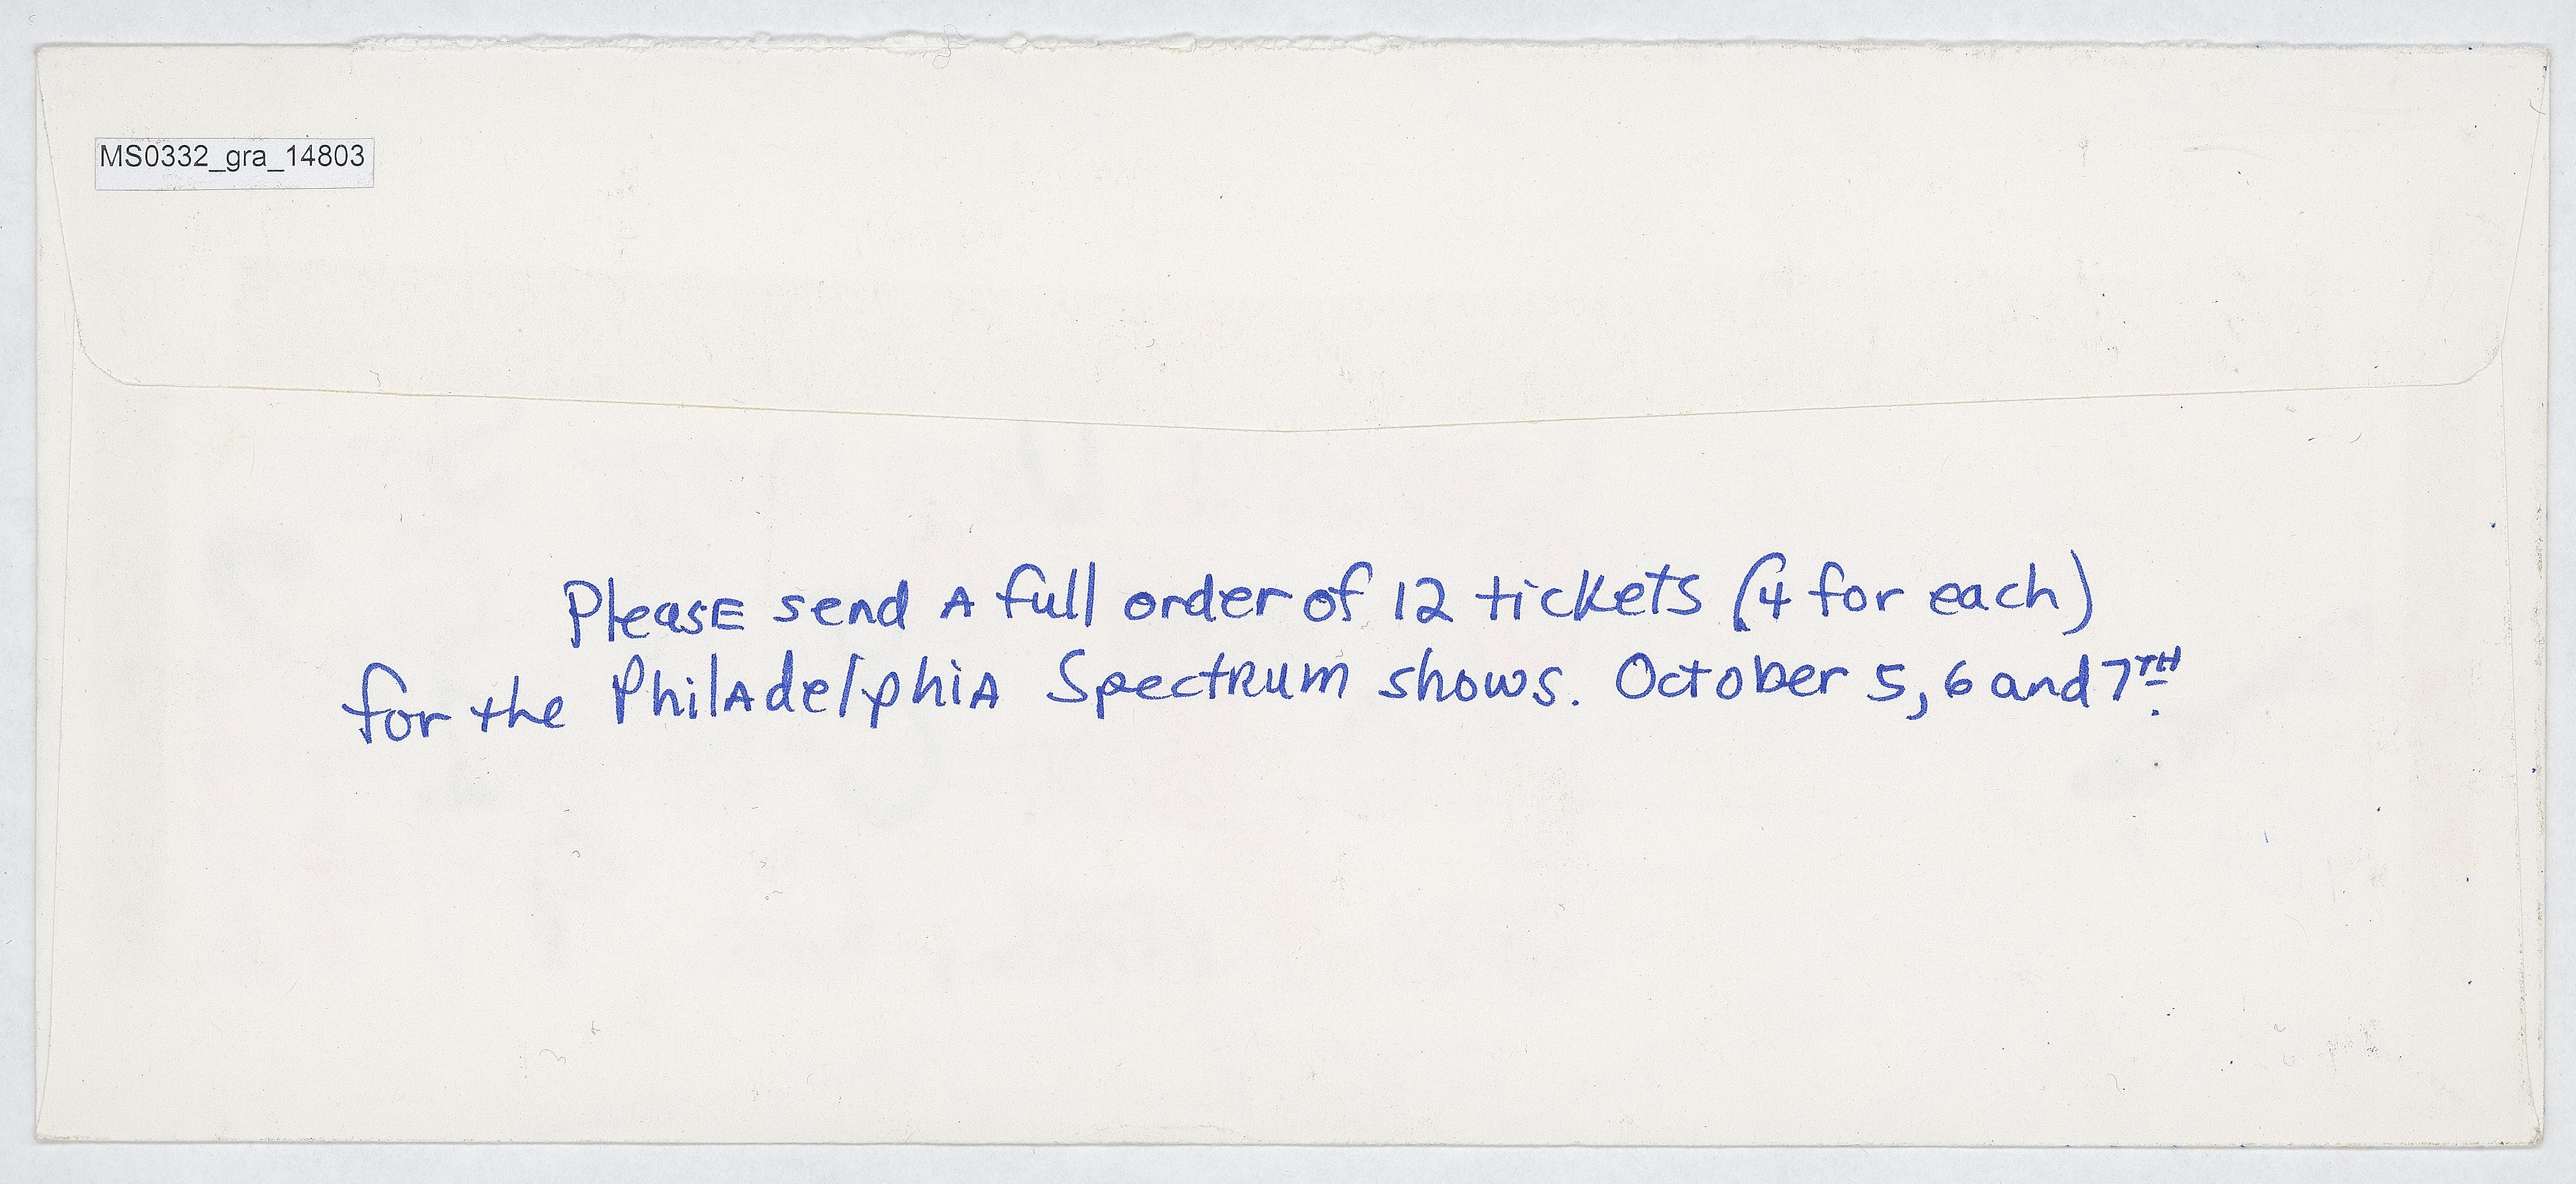 MS0332_gra_14803
Please send A full order of 12 tickets (4 for each)
for the Philadelphia Spectrum shows. October 5, 6 and 7TH.